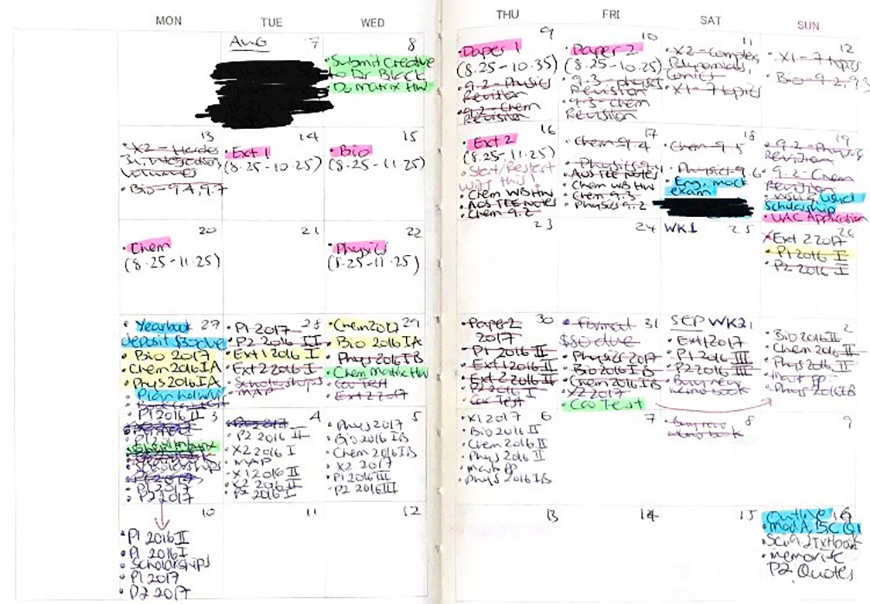 MON
TUE
WED
THU
FRI
SAT
SUN
AUG 7
8
• Submit Creative
to Dr Black
• Do Matrix HW
9
• Paper 1
(8.25-10.35)
• 9.2 - Physics
Revision
• 9.2 - Chem
Revision
10
• Paper 2
(8.25-10.25)
• 9.3 - Physics
Revision
• 9.3 - Chem
Revision
11
• X2 - Complex,
Polynomials,
Conics
• X1 - 7 topics
12
• X1 - 7 topics
• Bio - 9.2, 9.3
13
Volumes
• Bio - 9.4, 9.7
14
• Ext 1
(8.25-10.25)
15
• Bio
(8.25-11.25)
16
• Ext 2
(8.25-11.25)
• Chem WB HW
• Chem 9.2
17
• Chem 9.4
• Chem WB HW
• Chem 9.3
• Physics 9.2
18
• Chem 9.5
• Physics 9.6
• Eng. mock
exam
19
• 9.2 - Physics
Revision
• 9.2 - Chem
Revision
Scholarship
• UAC Application
20
• Chem
(8.25-11.25)
21
22
• Physics
(8.25-11.25)
23
24
WK1 25
26
Ext 2 2017
• P1 2016 I
• P2 2016 I
• Yearbook 27
deposit $60 due
• Bio 2017
• Chem 2016 IA
• Phys 2016 IA
28
• P1 2017
• P2 2016 II
• Ext 1 2016 I
• Ext 2 2016 I
• Scholarships
• MAP
• Chem 2017 29
• Bio 2016 IA
• Phys 2016 IB
• Chem Matrix HW
• Car Test
• Ext 2 2017
• Paper 2 30
2017
• P1 2016 II
• Ext 1 2016 II
• Ext 2 2016 II
• P2 2016 II
• Car Test
• Formal 31
$50 due
• Physics 2017
• Bio 2016 IB
• Chem 2016 IB
• Car Test
SEP WK2 1
• Ext 1 2017
• P1 2016 III
• P2 2016 III
• Buy new
memo book
2
• Bio 2016 II
• Chem 2016 II
• Phys 2016 II
• Phys 2016 IB
P1 2016 II 3
P1 2016 I
• Scholarships
• P1 2017
• P2 2017
4
• P2 2016 II
• X2 2016 I
• MAP
• X1 2016 II
• X2 2016 II
• P2 2016 I
5
• Phys 2017
• Bio 2016 IB
• Chem 2016 IB
• X2 2017
• P1 2016 III
• P2 2016 III
• X1 2017 6
• Bio 2016 II
• Chem 2016 II
• Phys 2016 II
• Phys 2016 IB
7
• Buy new 8
memo book
9
10
• P1 2016 II
• P1 2016 I
• Scholarships
• P1 2017
• P2 2017
11
12
13
14
15
Outline 16
Mod A, B, C Q1
• Memorise
P2 Quotes